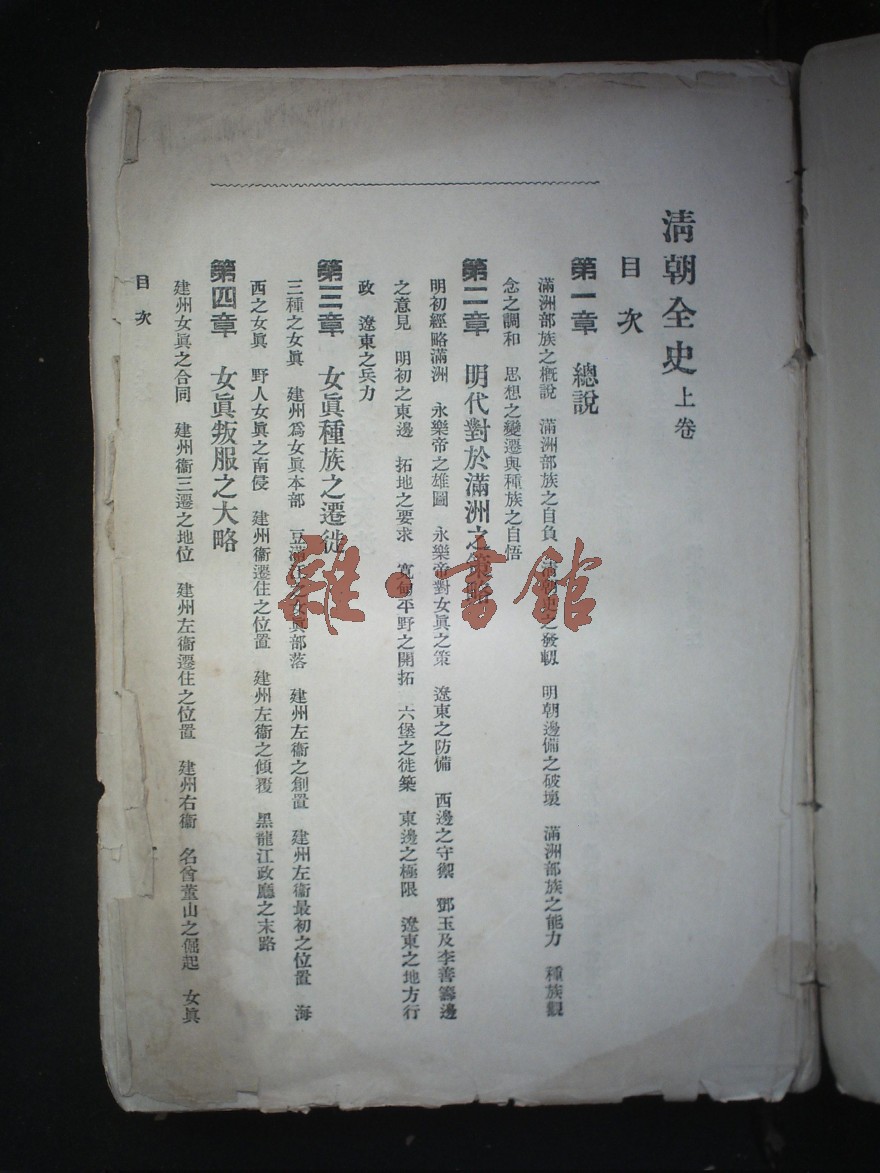 清朝全史 上卷
目次
第一章 總說
滿洲部族之概說 滿洲部族之自負 清朝史之發軔 明朝邊備之破壞 滿洲部族之能力 種族觀
念之調和 思想之變遷與種族之自悟
第二章 明代對於滿洲之策略
明初經略滿洲 永樂帝之雄圖 永樂帝對女眞之策 遼東之防備 西邊之守禦 鄧玉及李善籌邊
之意見 明初之東邊 拓地之要求 寬甸平野之開拓 六堡之徙築 東邊之極限 遼東之地方行
政 遼東之兵力
第三章 女眞種族之遷徙
三種之女眞 建州爲女眞本部 豆滿江之女眞部落 建州左衞之創置 建州左衞最初之位置 海
西之女眞 野人女眞之南侵 建州衞遷住之位置 建州左衞之傾覆 黑龍江政廳之末路
第四章 女眞叛服之大略
建州女眞之合同 建州衞三遷之地位 建州左衞遷住之位置 建州右衞 名酋董山之倔起 女眞
目次
雜·書館